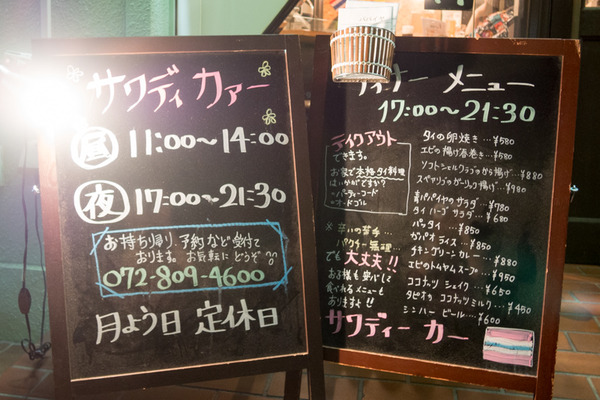 サワディ カァー
昼 11:00〜14:00
夜 17:00〜21:30
お持ち帰り、予約など受付て
おります。お気軽に どうぞ
072-809-4600
月よう日 定休日
ディナー メニュー
17:00〜21:30
テイクアウト
できます。
お家で本格タイ料理
はいかがですか?
・パーティーコード
・オードブル
※ 辛いの苦手
パクチー無理
でも大丈夫!!
お子様も安心して
食べれるメニューも
ありますよ!!
サワディー カー
タイの卵焼き…¥580
エビの揚げ春巻き…¥580
ソフトシェルクラブのから揚げ…¥880
スペアリブのガーリック揚げ…¥980
青パパイヤのサラダ…¥780
タイ ハーブ サラダ…¥680
パッタイ…¥850
ガパオ ライス…¥850
チキン グリーン カレー…¥880
エビのトムヤムスープ…¥950
ココナッツ シェイク…¥650
タピオカ ココナッツミルク…¥450
シンハー ビール…¥600